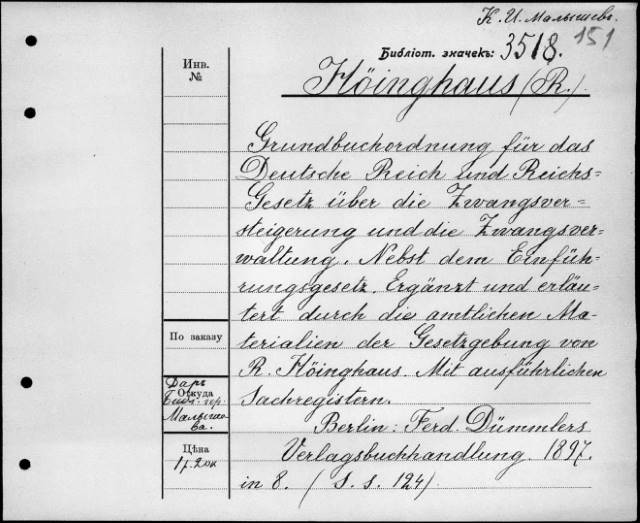 К. И. Малышевъ.
151
Библіот. значекъ: 3518.
Инв.
№
Höinghaus (R.)
Grundbuchordnung für das
Deutsche Reich und Reichs=
Gesetz über die Zwangsver=
steigerung und die Zwangsver=
waltung. Nebst dem Einfüh=
rungsgesetz. Ergänzt und erläu=
tert durch die amtlichen Ma=
terialien der Gesetzgebung von
R. Höinghaus. Mit ausführlichen
Sachregistern.
Berlin: Ferd. Dümmlers
Verlagsbuchhandlung. 1897.
in 8. (S. s. 124)
По заказу
Даръ
Откуда
Малыше
ва.
Цѣна
1 р. 20 к